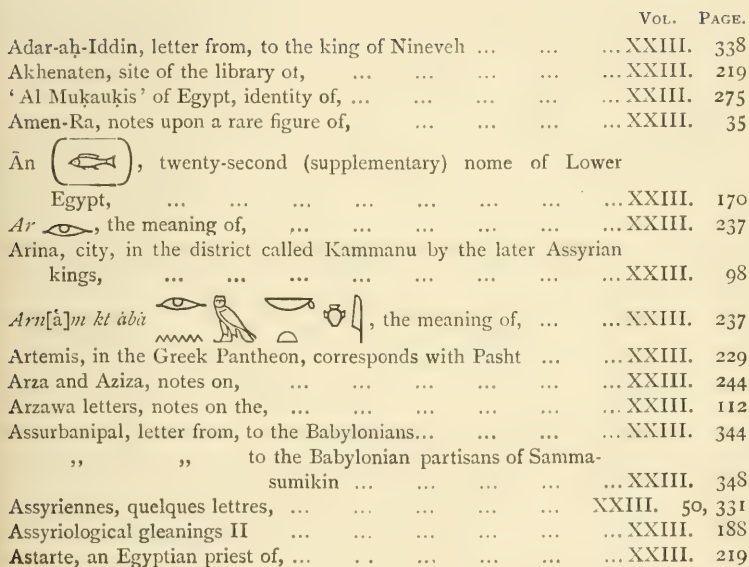 VOL. PAGE.
Adar-aḥ-Iddin, letter from, to the king of Nineveh ... ... ... XXIII. 338
Akhenaten, site of the library ot, ... ... ... ... XXIII. 219
‘ Al Muḳauḳis ’ of Egypt, identity of, ... ... ... ... XXIII. 275
Amen-Ra, notes upon a rare figure of, ... ... ... XXIII. 35
Ān ( ), twenty-second (supplementary) nome of Lower
Egypt, ... ... ... ... ... ... ... XXIII. 170
Ar , the meaning of, ... ... ... ... ... XXIII. 237
Arina, city, in the district called Kammanu by the later Assyrian
kings, ... ... ... ... ... ... ... XXIII. 98
Arn[ȧ]m kt ȧbȧ , the meaning of, ... ... XXIII. 237
Artemis, in the Greek Pantheon, corresponds with Pasht ... ... XXIII. 229
Arza and Aziza, notes on, ... ... ... ... ... XXIII. 244
Arzawa letters, notes on the, ... ... ... ... ... XXIII. 112
Assurbanipal, letter from, to the Babylonians... ... ... ... XXIII. 344
,, ,, to the Babylonian partisans of Samma-
sumikin ... ... ... ... ... XXIII. 348
Assyriennes, quelques lettres, ... ... ... ... XXIII. 50, 331
Assyriological gleanings II ... ... ... ... ... XXIII. 188
Astarte, an Egyptian priest of, ... . . ... ... ... XXIII. 219